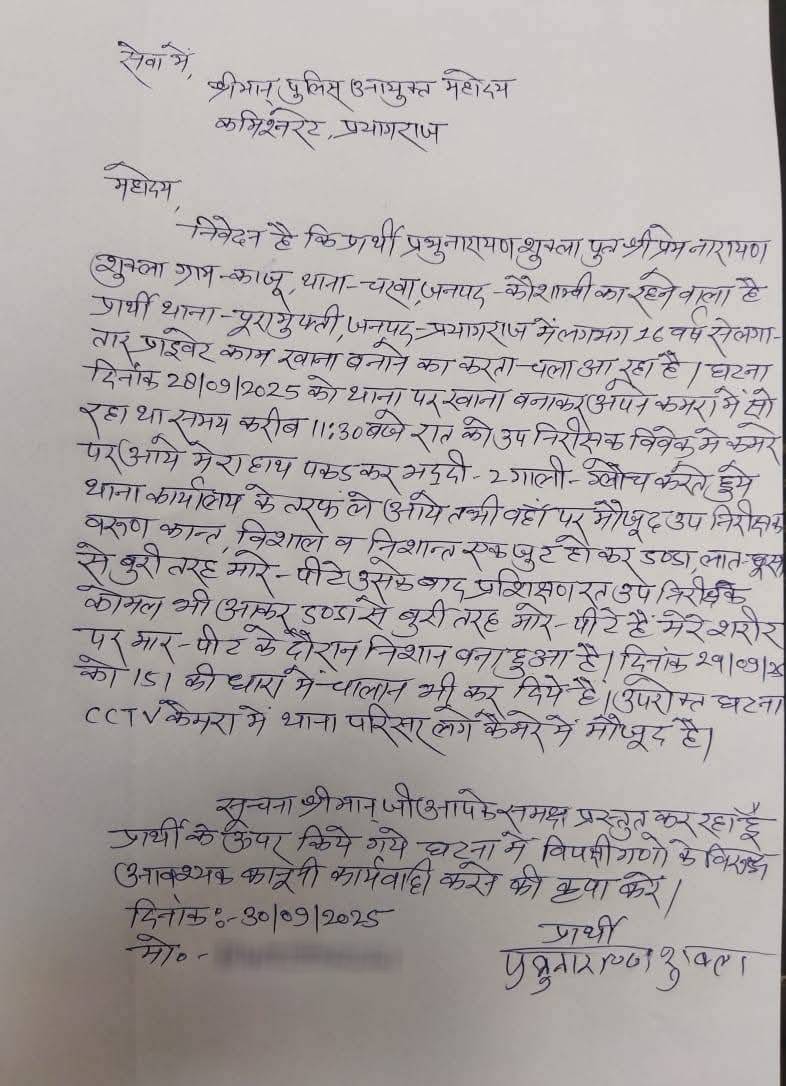 सेवा में,
श्रीमान् पुलिस आयुक्त महोदय
कमिश्नरेट, प्रयागराज
महोदय,
निवेदन है कि प्रार्थी प्रभुनारायण शुक्ला पुत्र श्री प्रेम नारायण
शुक्ला ग्राम - काजू, थाना - चरवा, जनपद - कौशाम्बी का रहने वाला है
प्रार्थी थाना - पूरामुफ्ती, जनपद - प्रयागराज में लगभग 16 वर्ष से लगा-
तार प्राइवेट काम खाना बनाने का करता चला आ रहा है। घटना
दिनांक 28/09/2025 को थाना पर खाना बनाकर अपने कमरा में सो
रहा था समय करीब 11:30 बजे रात को उप निरीक्षक विवेक मे कमरे
पर आये मेरा हाथ पकड कर भद्दी - 2 गाली - ग्लौच करते हुये
थाना कार्यालय के तरफ ले आये तभी वहाँ पर मौजूद उप निरीक्षक
वरूण कान्त, विशाल व निशान्त एक जुट हो कर डण्डा, लात-घूसा
से बुरी तरह मारे - पीटे उसके बाद प्रशिक्षणरत उप निरीक्षक
कोमल भी आकर डण्डा से बुरी तरह मारे - पीटे है मेरे शरीर
पर मार - पीट के दौरान निशान बना हुआ है। दिनांक 29/09/25
को 151 की धारा में चालान भी कर दिये है। उपरोक्त घटना
CCTV कैमरा में थाना परिसर लगे कैमरे में मौजूद है।
सूचना श्रीमान् जी आपके समक्ष प्रस्तुत कर रहा हूँ
प्रार्थी के ऊपर किये गये घटना में विपक्षीगणो के विरुद्ध
आवश्यक कानूनी कार्यवाही करने की कृपा करें।
दिनांक :- 30/09/2025
मो० -
प्रार्थी
प्रभुनारायण शुक्ला